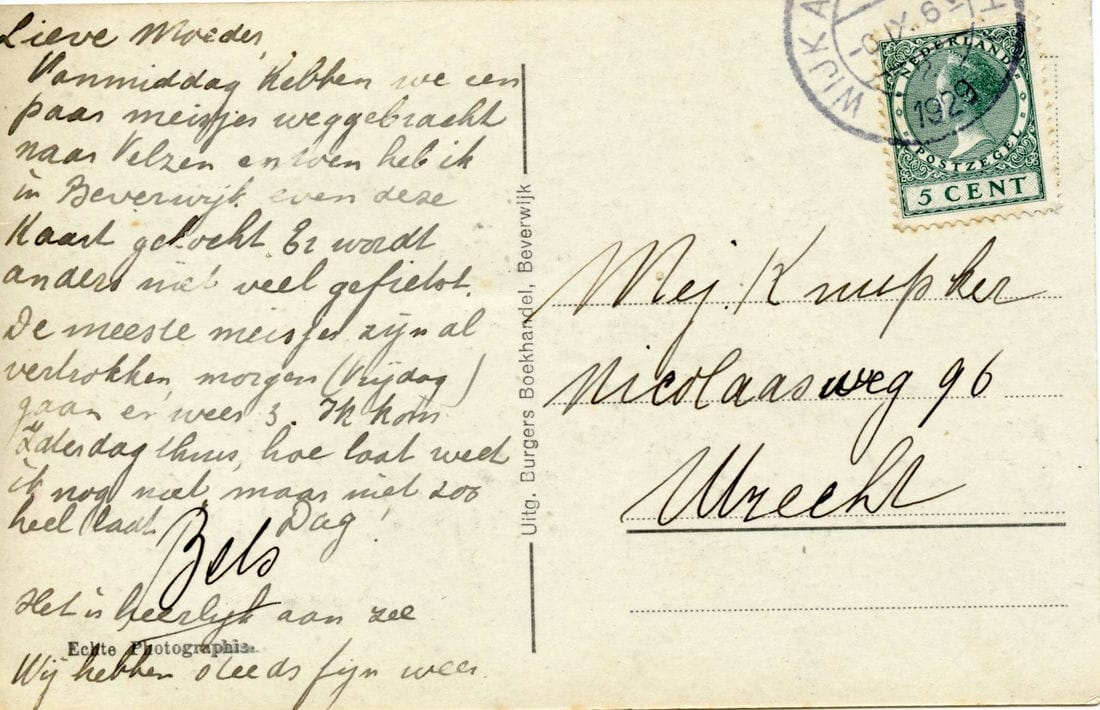 Lieve Moeder,
Vanmiddag hebben we een
paar meisjes weggebracht
naar Velzen en toen heb ik
in Beverwijk even deze
Kaart gekocht. Er wordt
anders niet veel gefietst.
De meeste meisjes zijn al
vertrokken, morgen (Vrijdag)
gaan er weer 3. Ik kom
Zaterdag thuis, hoe laat weet
ik nog niet, maar niet zoo
heel laat. Dag!
Bets
Het is heerlijk aan zee
Echte Photographie
Wij hebben steeds fijn weer.
Uitg. Burgers Boekhandel, Beverwijk
WIJK A
1929
NEDERLAND
POSTZEGEL
5 CENT
Mej. Knupker
Nicolaasweg 96
Utrecht